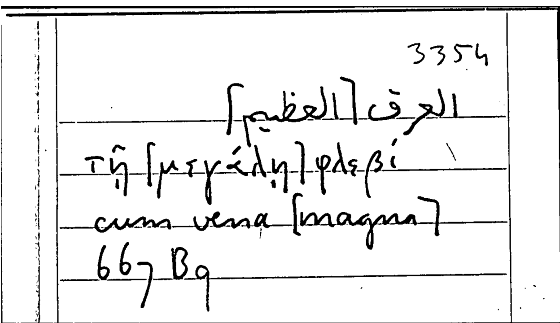 3354
العرق [العظيم]
τῇ [μεγάλῃ] φλεβί
cum vena [magna]
667 B9